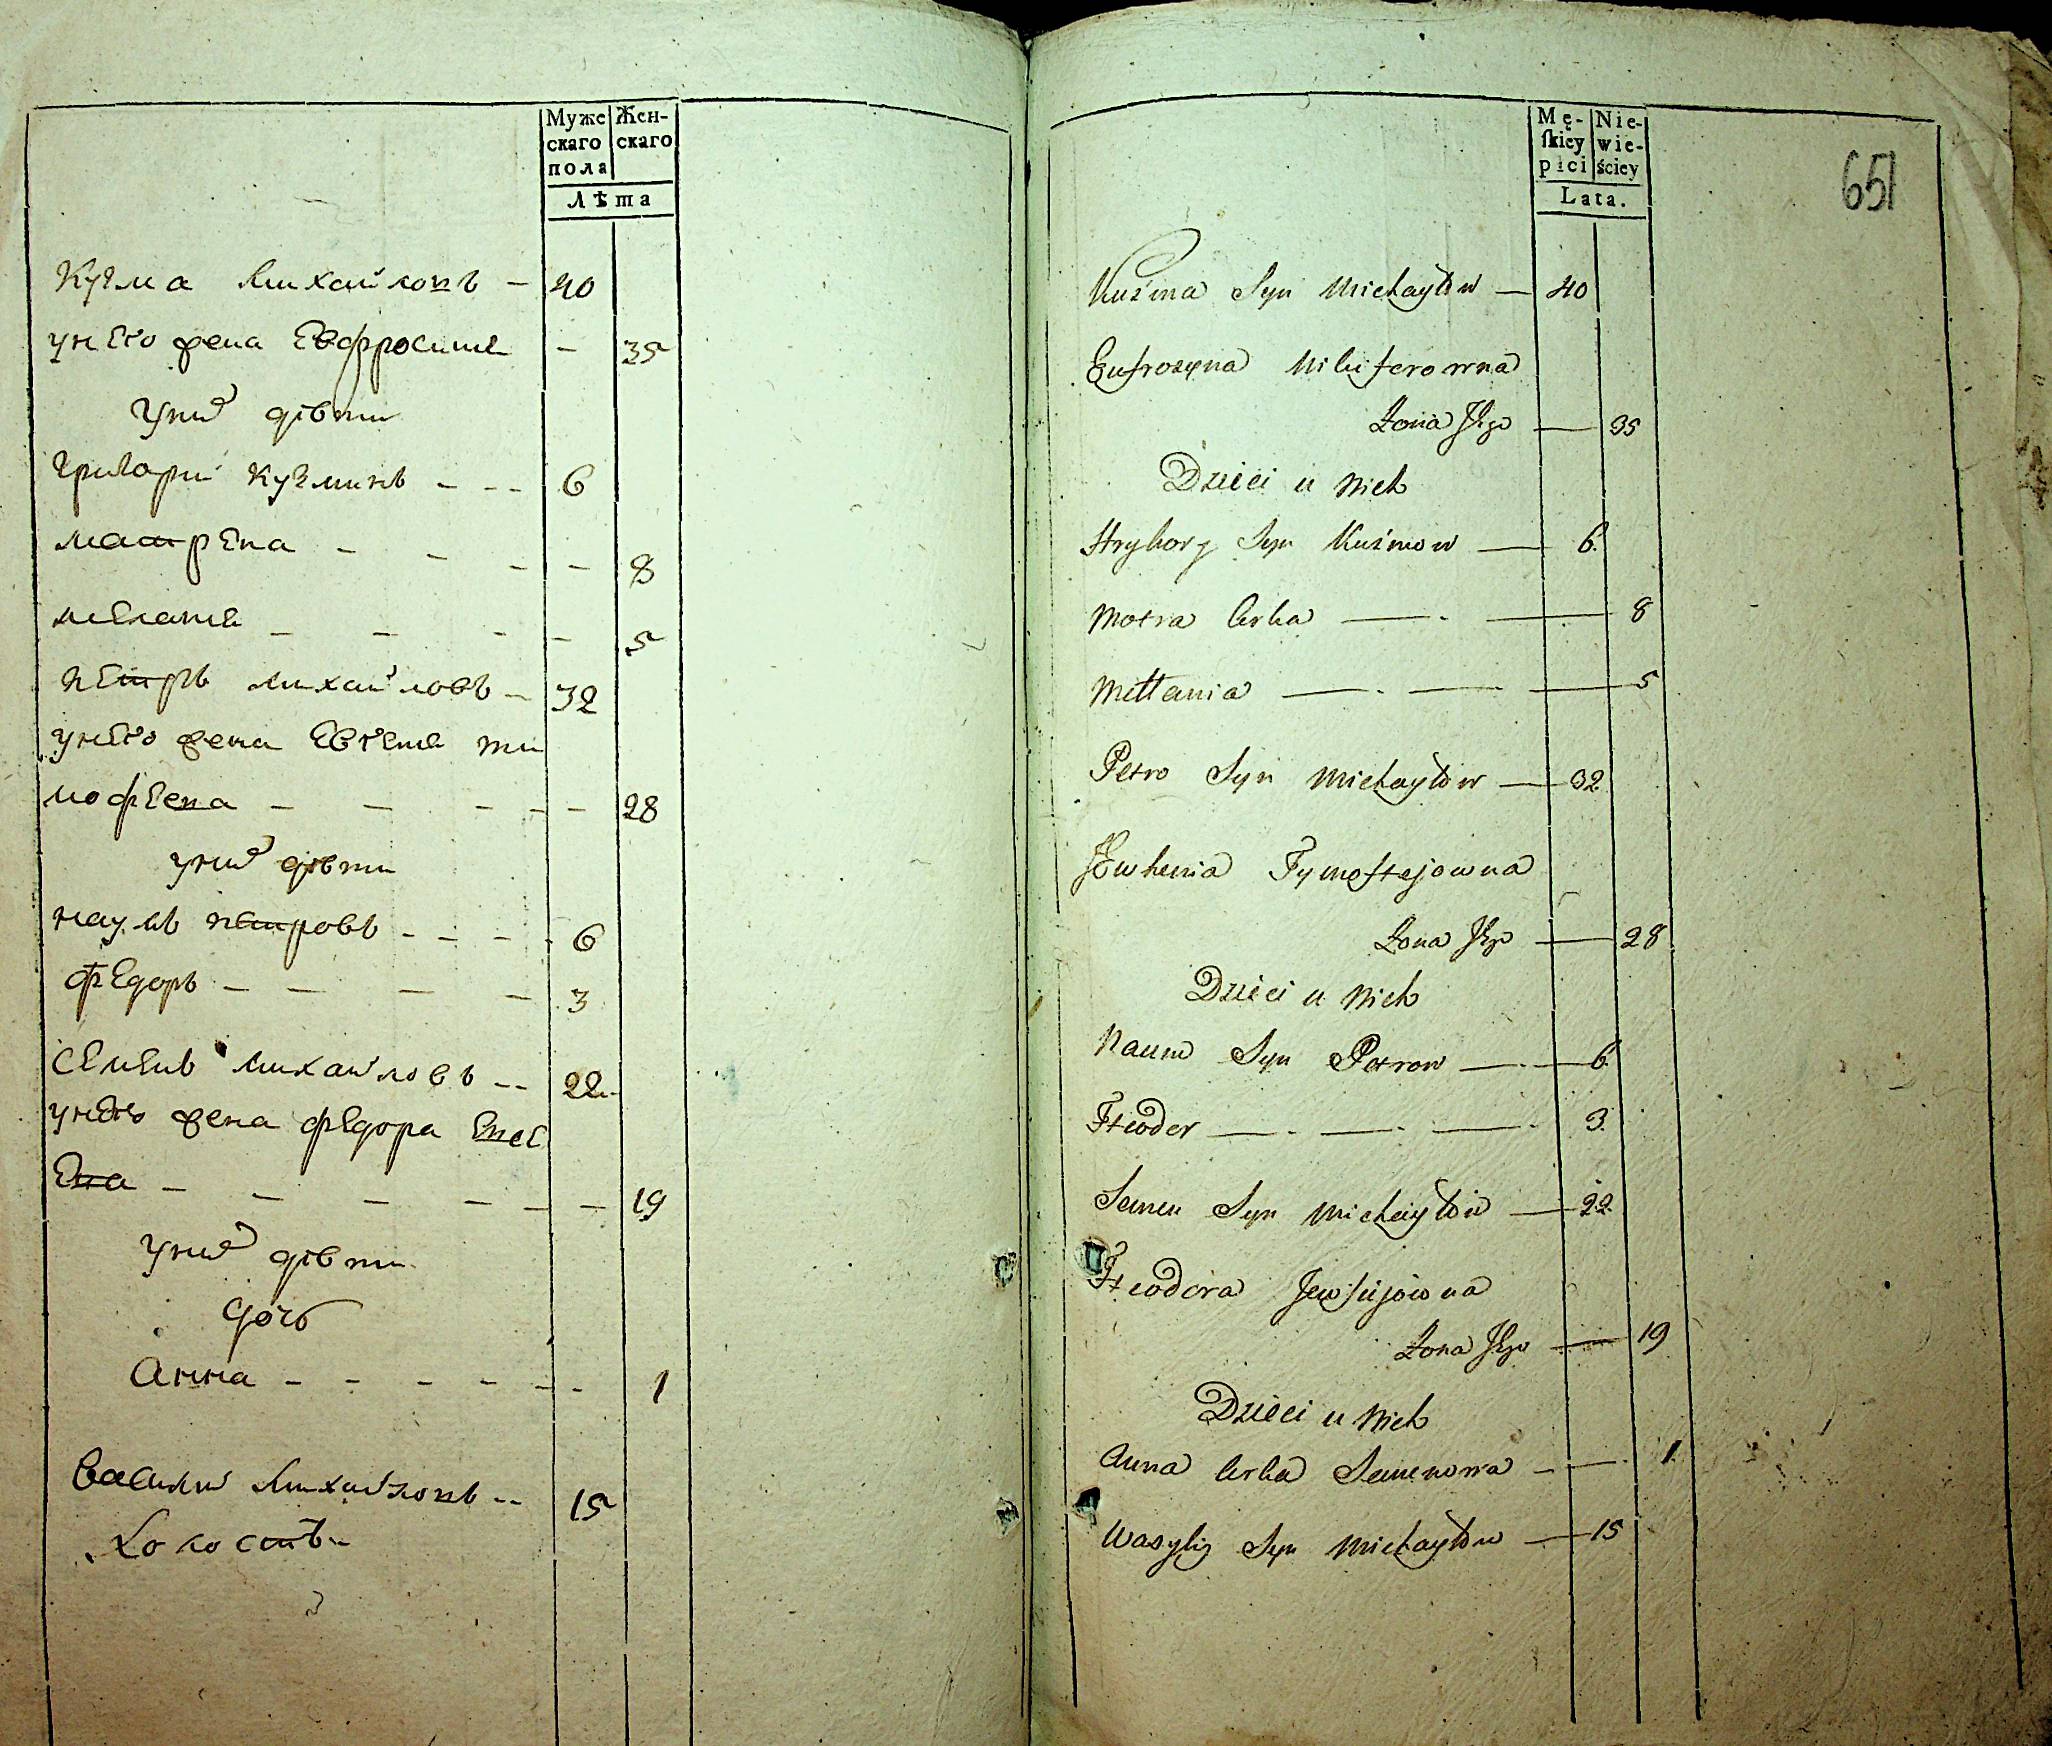 Муже
скаго
пола
Жен-
скаго
Лѣта
Кузма Михайловъ - 40
унего жена Евфросинея - 35
унихъ дѣти
григорий Кузминъ - - - 6
матрена - - - - 8
мелания - - - - 5
петръ михайловъ - 32
унего жена Евгения ти
мофеена - - - - - 28
унихъ дѣти
наумъ петровъ - - - - 6
федоръ - - - - 3
семенъ михайловъ - - 22
унего жена федора Евсе
Ена - - - - - - 19
унихъ дѣти
дочь
анна - - - - - - 1
василий михайловъ - - 15
холостъ
Mę-
skiey
płci
Nie-
wie-
ściey
Lata.
651
Kuźma Syn Michayłow — 40
Eufrozyna Nikiferowna
Żona Jego — 35
Dzieci u Nich
Hryhory Syn Kuźmow — 6.
Motra Corka — . — 8
Mełłania — . — — 5
Petro Syn Michayłow — 32
Jewhenia Tymoftejowna
Żona Jego — 28
Dzieci u Nich
Naum Syn Petrow — . — 6
Fteoder — . — . — . 3.
Semen Syn Michayłow — 22.
Fteodora Jewsiijowna
Żona Jego — 19
Dzieci u Nich
Anna Corka Semenowa - — . 1.
Wasyliy Syn Michayłow — 15